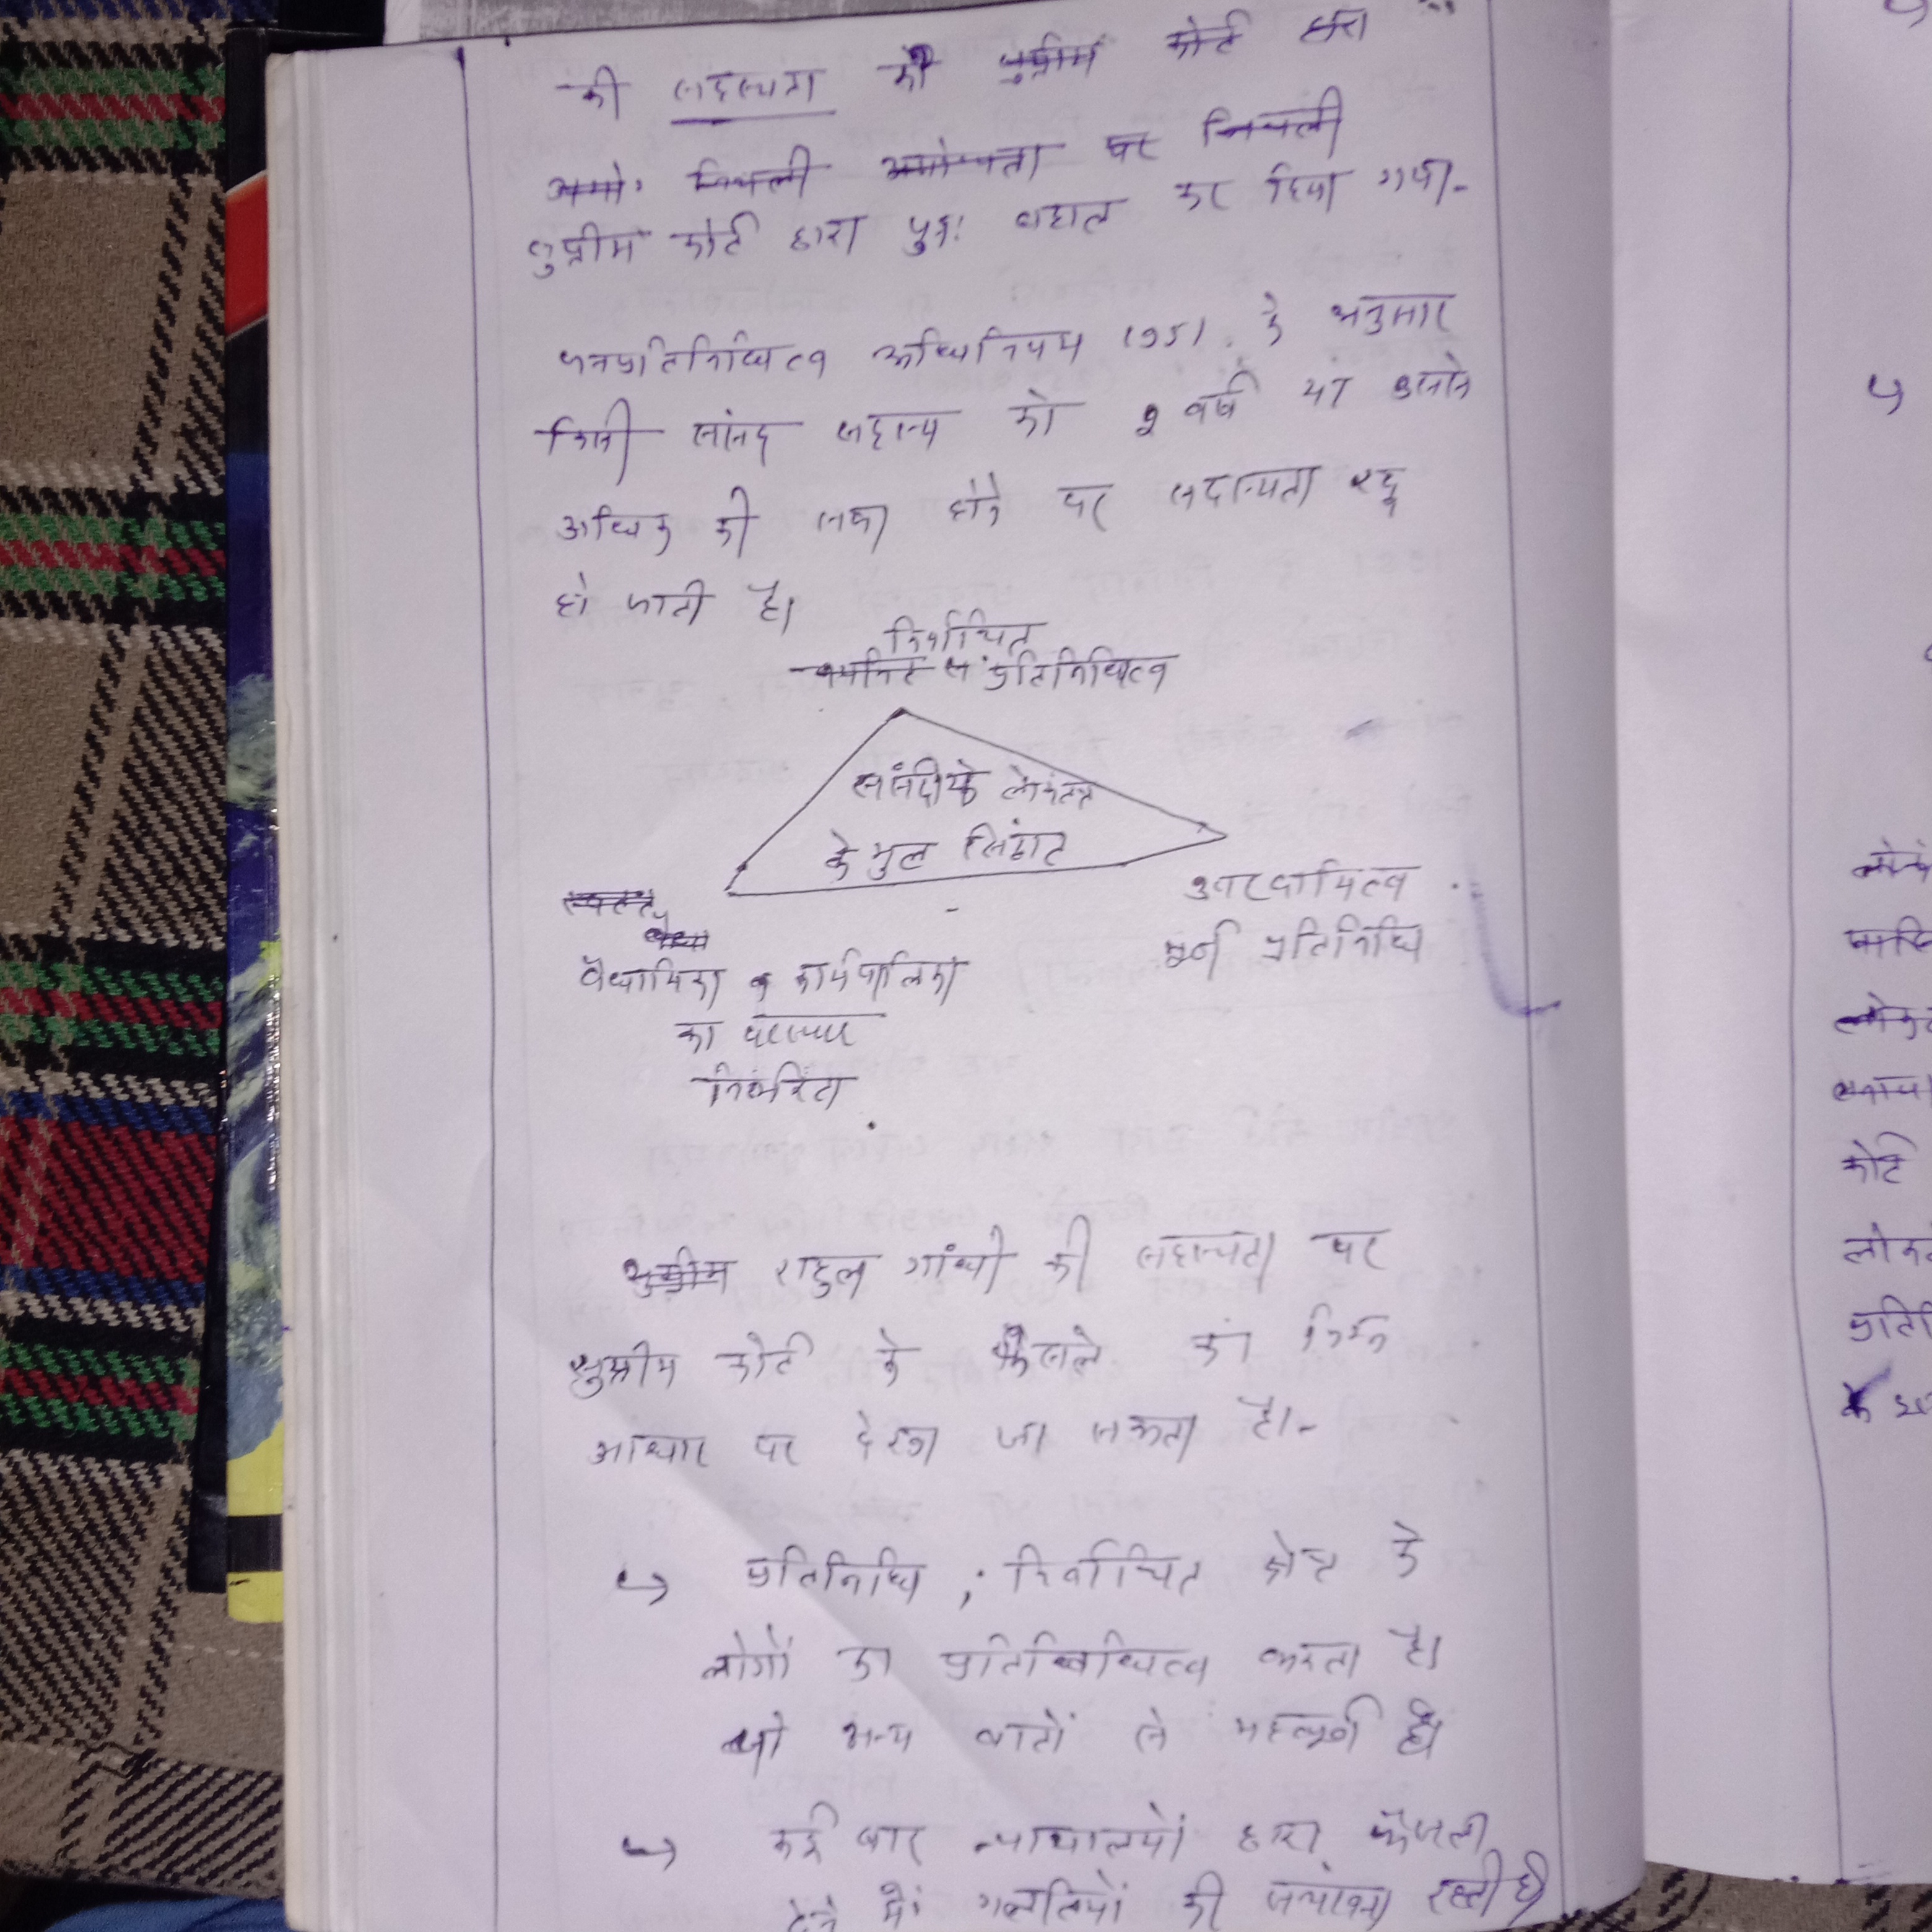 की सदस्यता को सुप्रीम कोर्ट द्वारा
निचली अयोग्यता पर निचली
सुप्रीम कोर्ट द्वारा पुनः बहाल कर दिया गया-
जनप्रतिनिधित्व अधिनियम 1951 के अनुसार
किसी सांसद सदस्य को 2 वर्ष या उससे
अधिक की सजा होने पर सदस्यता रद्द
हो जाती है।
निर्वाचित
प्रतिनिधित्व
संसदीय लोकतंत्र
के मुल सिद्धांत
उत्तरदायित्व
पूर्ण प्रतिनिधि
वैधायिका व कार्यपालिका
का परस्पर
निर्भरता
सुप्रीम राहुल गांधी की सदस्यता पर
सुप्रीम कोर्ट के फैसले का निम्न
आधार पर देखा जा सकता है।-
↪ प्रतिनिधि ; निर्वाचित क्षेत्र के
लोगों का प्रतिनिधित्व करता है।
जो अन्य बातों से महत्वपूर्ण है।
↪ कई बार न्यायालयों द्वारा फैसला
देने में गलतियों की संभावना रहती है
कोर्ट